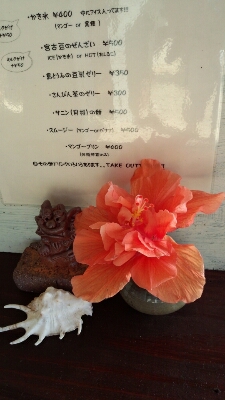 ・かき氷 ¥600 ゆたアイス入ってます!!
(マンゴー or 黒糖)
・宮古豆のぜんざい ¥500
ICE(かき氷) or HOT(おしるこ)
・島どうふの豆乳ゼリー ¥350
・さんぴん茶のゼリー ¥300
・サニン(月桃)の餅 ¥500
・スムージー (マンゴー or バナナ) ¥500
・マンゴープリン ¥600
TAKE OUT